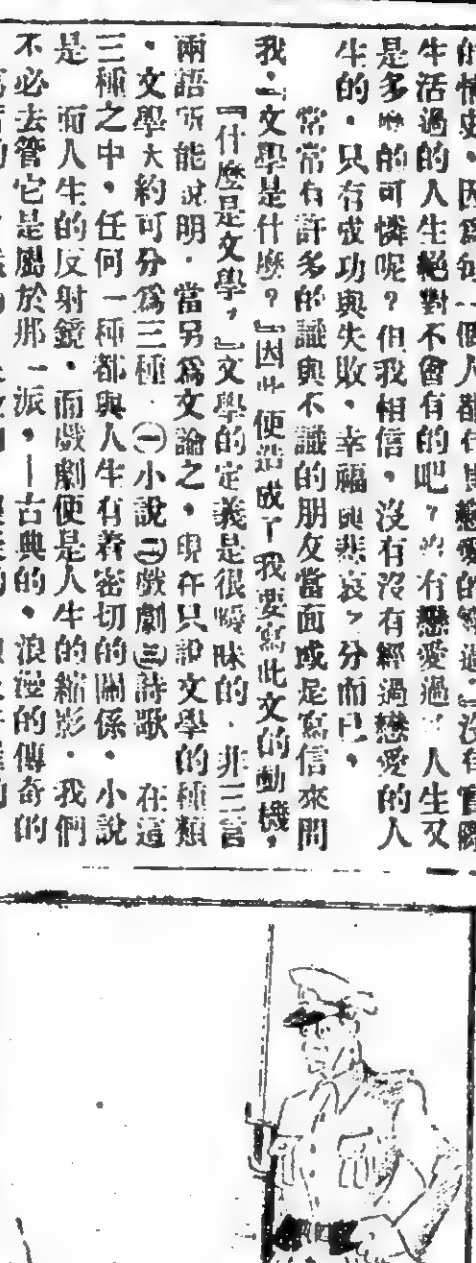 的情史，因爲每一個人都有
生活過的人生絕對不會有的吧？沒有戀愛過的人生又
是多麽的可憐呢？但我相信，沒有沒有經過戀愛的人
生的，只有成功與失敗，幸福與悲哀之分而已。
常常有許多的識與不識的朋友當面或是寫信來問
我：『文學是什麽？』因此便造成了我要寫此文的動機，
『什麽是文學，』文學的定義是很曖昧的，非三言
兩語所能說明，當另爲文論之，現在只說文學的種類
，文學大約可分爲三種，㈠小說㈡戲劇㈢詩歌 在這
三種之中，任何一種都與人生有着密切的關係，小說
是 面人生的反射鏡，而戲劇便是人生的縮影，我們
不必去管它是屬於那一派，—古典的，浪漫的傳奇的